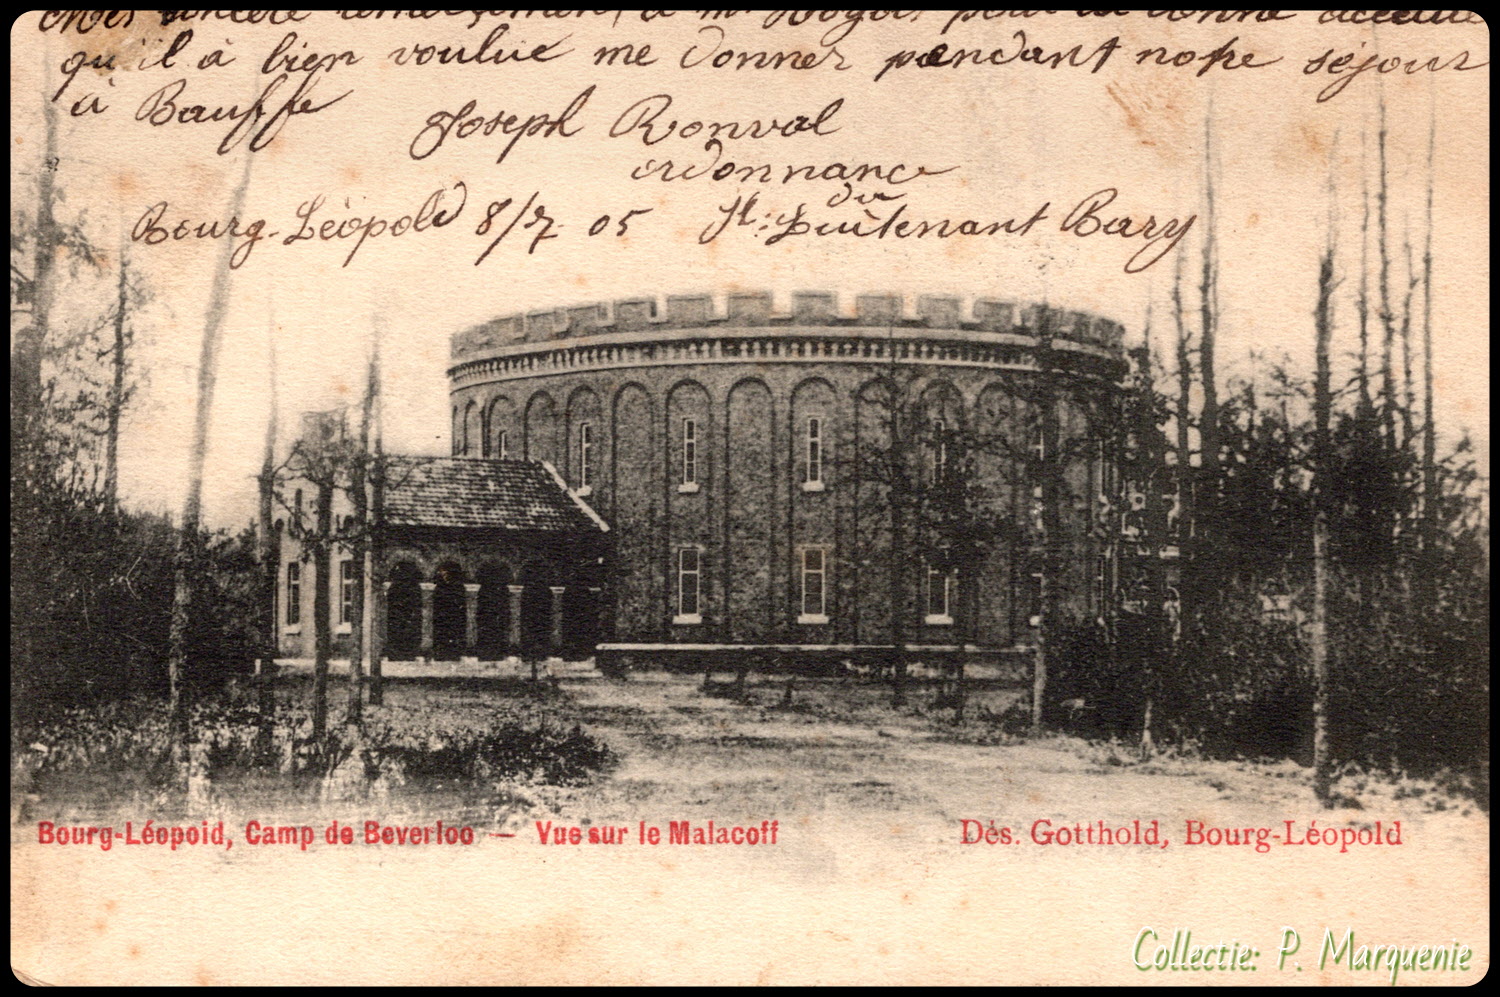 Mes sincère remerciement, à mr pour la bonne
qu'il à bien voulue me donner pendant notre séjour
à Bauffe
Joseph Ronval
ordonnance
du
Bourg-Léopold 8/7 05 St: Luitenant Bary
Bourg-Léopold, Camp de Beverloo — Vue sur le Malacoff
Dés. Gotthold, Bourg-Léopold
Collectie: P. Marquenie